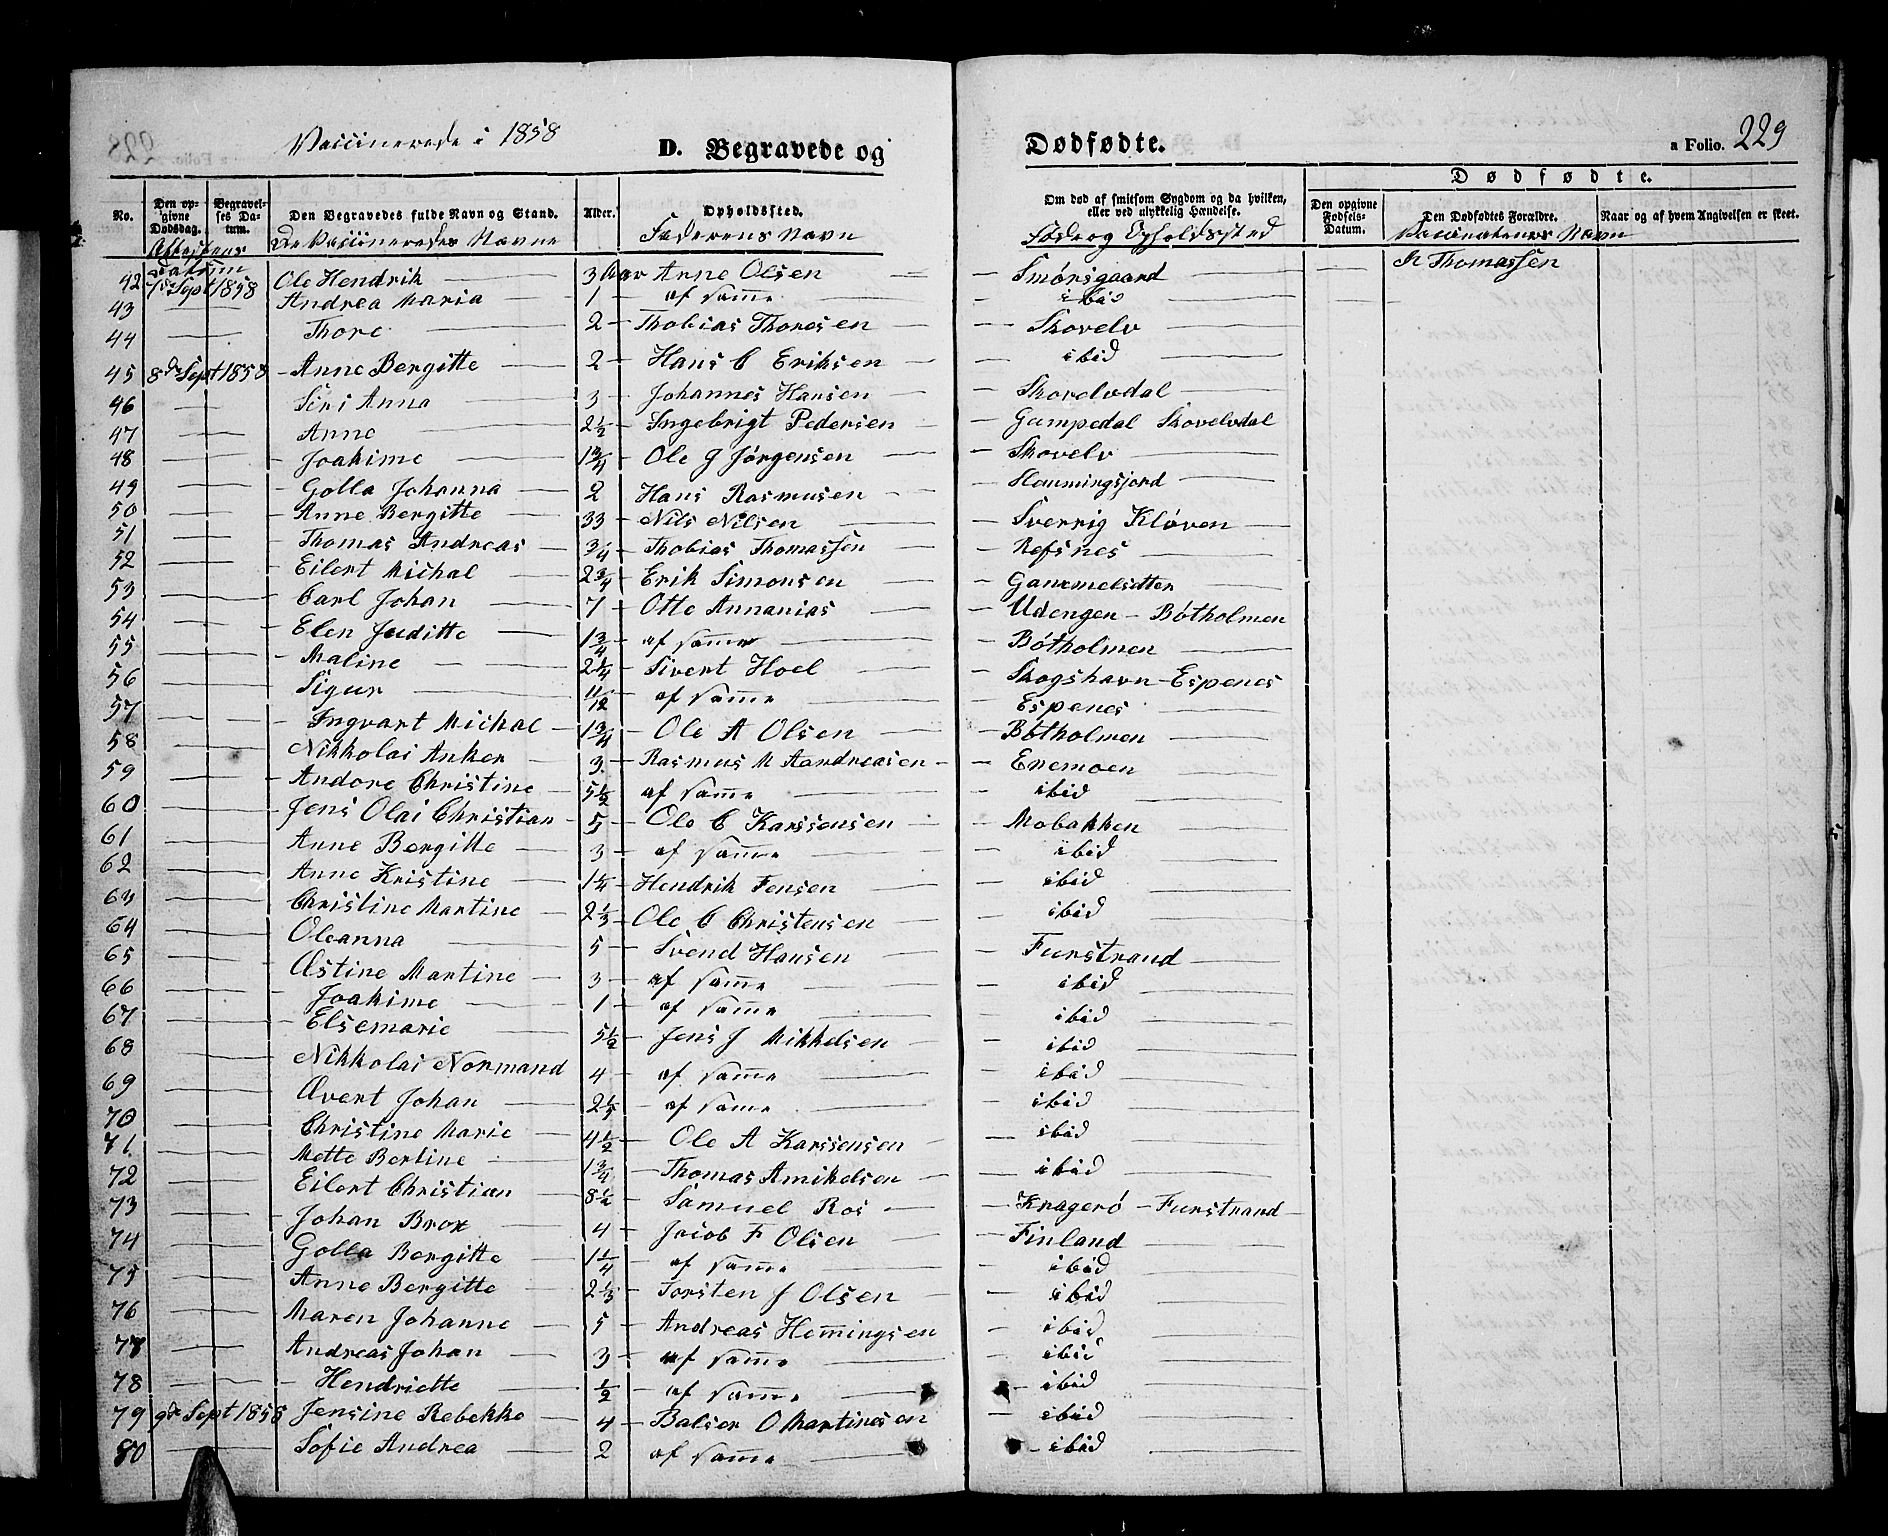 Vaciinerede i 1858
D. Begravede og Dødfødte. a Folio. 229
Dødfødte.
No. Den opgivne Dødsdag. Begravelses Datum. Den Begravedes fulde Navn og Stand. Alder. Opholdssted. Om død af smitsom Sygdom og da hvilken, eller ved ulykkelig Hændelse. Den opgivne Fødsels-Datum. Den Dødfødtes Forældre. Naar og af hvem Angivelsen er skeet.
Attestens Datum De Vaciineredes Navne Faderens Navn Føde og Opholdssted Vaccinatenrs Navn
42 7de Sept 1858 Ole Hendrik 3 Aar Arne Olsen Smørsgaard Thomassen
43 Andrea Maria 1 af samme ibid
44 Thore 2 Thobias Thoresen Skovelv
45 8de Sept 1858 Anne Bergitte 2 Hans C Eriksen ibid
46 Siri Anna 3 Johannes Hansen Skovelvdal
47 Anne 2½ Ingebrigt Pedersen Gampedal Skovelvdal
48 Joakime 1¾ Ole J Jørgensen Skovelv
49 Golla Johanna 2 Hans Rasmusen Hemmingsjord
50 Anne Bergitte 33 Nils Nilsen Sverrig Kløven
51 Thomas Andreas ¾ Thobias Thomassen Refsnes
52 Eilert Michal 2¾ Erik Simonsen Gammelsætter
53 Carl Johan 7 Otte Annanias Udengen - Bótholmen
54 Elen Juditte 1¾ af samme Bótholmen
55 Maline 2¼ Sivert Hoel Skogshavn - Espenes
56 Sigur 11/12 af samme Espenes
57 Ingvart Michal 1¾ Ole A Olsen Bótholmen
58 Nikkolai Anker 3 Rasmus M Aandreasen Enemoen
59 Andore Christine 5½ af samme ibid
60 Jens Olai Christian 5 Ole C Karssensen Mobakken
61 Anne Bergitte 3 af samme ibid
62 Anne Kristine 1¼ Hendrik Jensen ibid
63 Christine Martine 2⅓ Ole C Christensen ibid
64 Oleanna 5 Svend Hansen Furstrand
65 Æstine Martine 3 af samme ibid
66 Joakime 1 af samme ibid
67 Elsemarie 5½ Jens J Mikkelsen ibid
68 Nikkolai Normand 4 af samme ibid
69 Ævert Johan 2 af samme ibid
70 Christine Marie 4½ Ole A Karssensen ibid
71. Mette Berline 1¾ Thomas Amikelsen ibid
72 Eilert Christian 8½ Samuel Ros Kragerø - Furstrand
73 Johan Brox 4 Jacob F Olsen Finland
74 Golla Bergitte 1¼ af samme ibid
75 Anne Bergitte 2⅓ Torsten J Olsen ibid
76 Maren Johanne 5 Andreas Hemingsen ibid
77 Andreas Johan 3 af samme ibid
78 Hendriette ½ af samme ibid
79 9de Sept 1858 Jensine Rebekke 4 Balser O Martinesen ibid
80 Sofie Andrea 2 af samme ibid